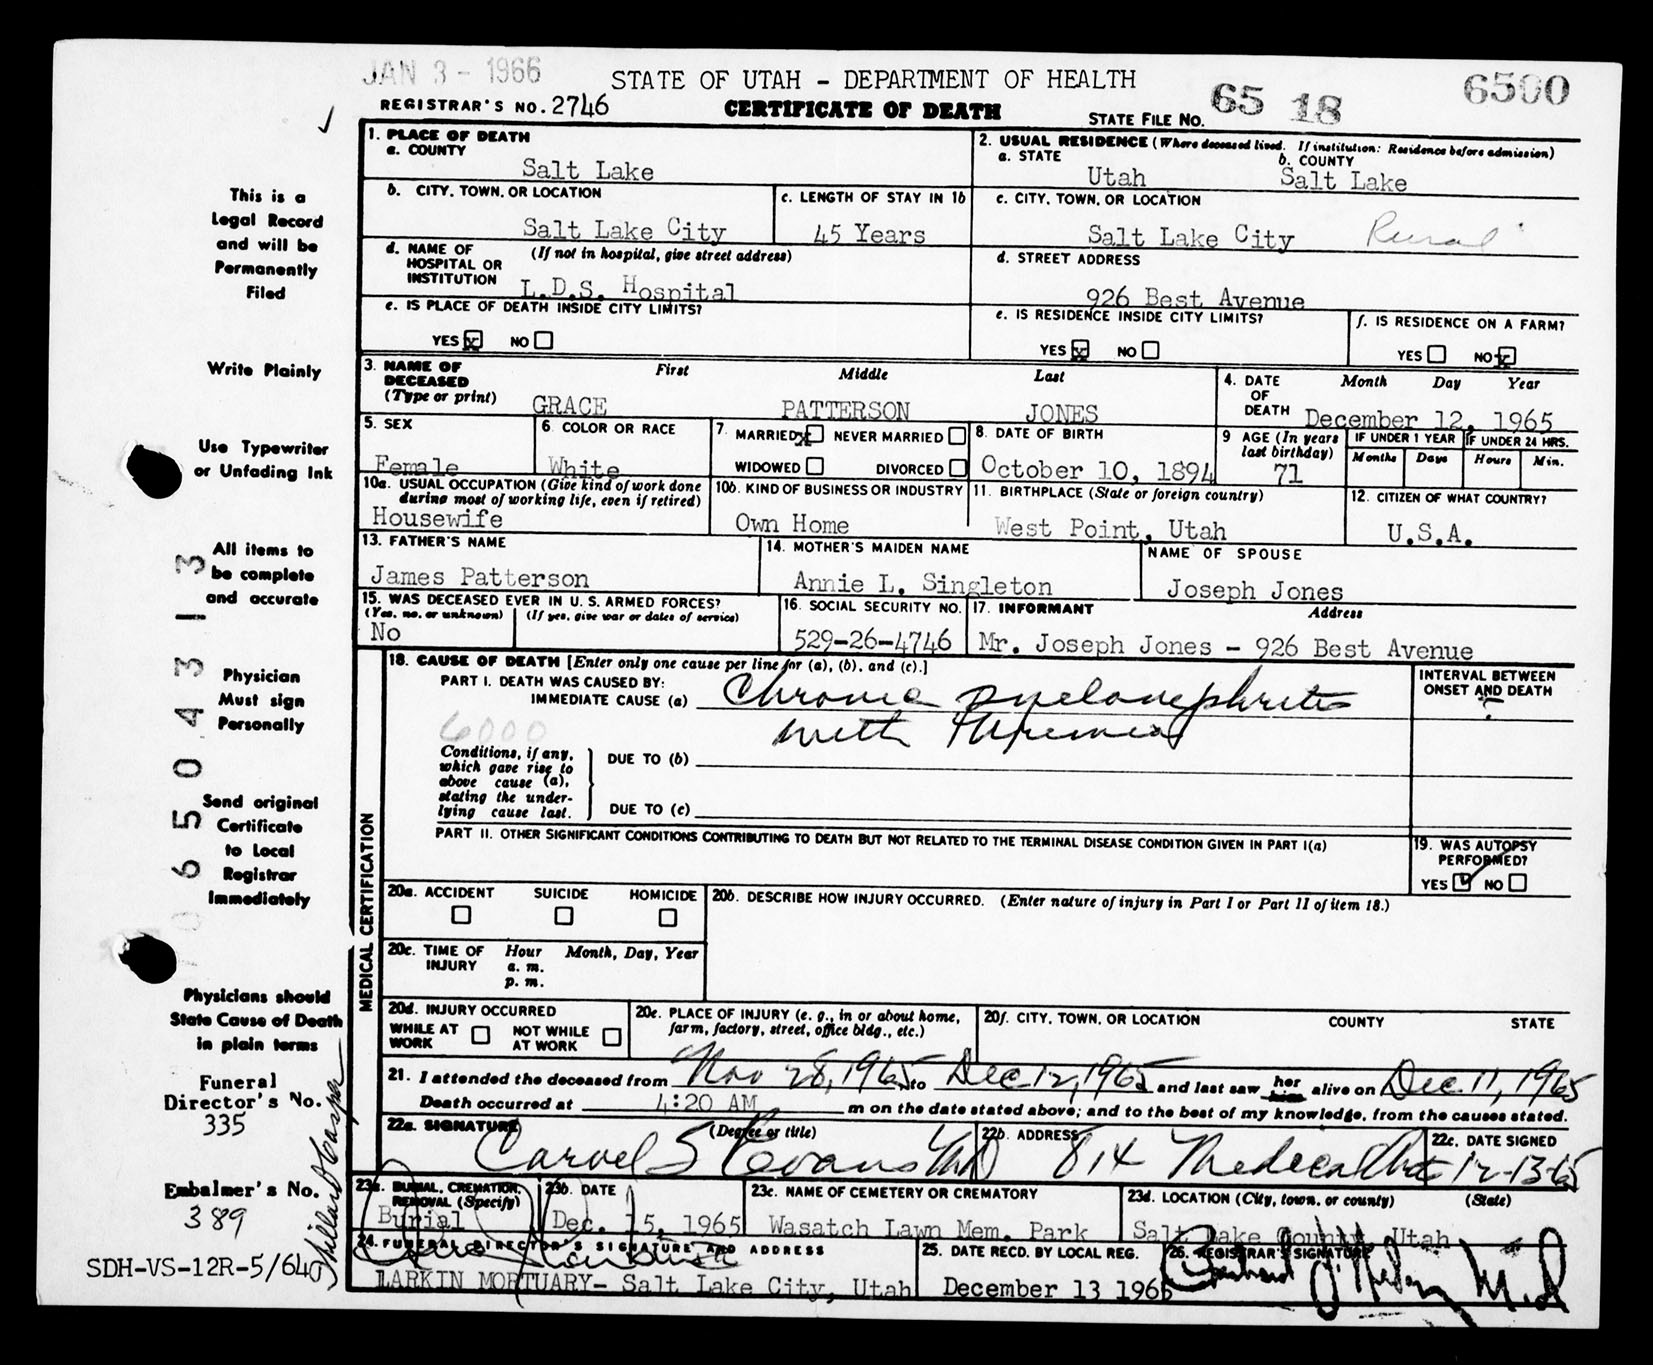 JAN 3 - 1966
STATE OF UTAH - DEPARTMENT OF HEALTH
6500
REGISTRAR'S NO. 2746
CERTIFICATE OF DEATH
STATE FILE NO. 65 18
This is a
Legal Record
and will be
Permanently
Filed
Write Plainly
Use Typewriter
or Unfading Ink
All items to
be complete
and accurate
Physician
Must sign
Personally
Send original
Certificate
to Local
Registrar
Immediately
Physicians should
State Cause of Death
in plain terms
Funeral
Director's No.
335
Embalmer's No.
389
SDH-VS-12R-5/64
0 6 5 0 4 3 1 3
1. PLACE OF DEATH
a. COUNTY
Salt Lake
2. USUAL RESIDENCE (Where deceased lived. If institution: Residence before admission)
a. STATE b. COUNTY
Utah Salt Lake
b. CITY, TOWN, OR LOCATION
Salt Lake City
c. LENGTH OF STAY IN 1b
45 Years
c. CITY, TOWN, OR LOCATION
Salt Lake City Rural
d. NAME OF HOSPITAL OR INSTITUTION (If not in hospital, give street address)
L.D.S. Hospital
d. STREET ADDRESS
926 Best Avenue
e. IS PLACE OF DEATH INSIDE CITY LIMITS?
YES x NO
e. IS RESIDENCE INSIDE CITY LIMITS?
YES x NO
f. IS RESIDENCE ON A FARM?
YES NO x
3. NAME OF DECEASED (Type or print)
First Middle Last
GRACE PATTERSON JONES
4. DATE OF DEATH Month Day Year
December 12, 1965
5. SEX
Female
6. COLOR OR RACE
White
7. MARRIED x NEVER MARRIED
WIDOWED DIVORCED
8. DATE OF BIRTH
October 10, 1894
9 AGE (In years last birthday)
71
IF UNDER 1 YEAR IF UNDER 24 HRS.
Months Days Hours Min.
10a. USUAL OCCUPATION (Give kind of work done during most of working life, even if retired)
Housewife
10b. KIND OF BUSINESS OR INDUSTRY
Own Home
11. BIRTHPLACE (State or foreign country)
West Point, Utah
12. CITIZEN OF WHAT COUNTRY?
U.S.A.
13. FATHER'S NAME
James Patterson
14. MOTHER'S MAIDEN NAME
Annie L. Singleton
NAME OF SPOUSE
Joseph Jones
15. WAS DECEASED EVER IN U. S. ARMED FORCES?
(Yes, no, or unknown) (If yes, give war or dates of service)
No
16. SOCIAL SECURITY NO.
529-26-4746
17. INFORMANT Address
Mr. Joseph Jones - 926 Best Avenue
MEDICAL CERTIFICATION
18. CAUSE OF DEATH [Enter only one cause per line for (a), (b), and (c).]
PART I. DEATH WAS CAUSED BY:
IMMEDIATE CAUSE (a) Chronic pyelonephritis
with Uremia
INTERVAL BETWEEN ONSET AND DEATH
?
6000
Conditions, if any, which gave rise to above cause (a), stating the underlying cause last.
DUE TO (b)
DUE TO (c)
PART II. OTHER SIGNIFICANT CONDITIONS CONTRIBUTING TO DEATH BUT NOT RELATED TO THE TERMINAL DISEASE CONDITION GIVEN IN PART I(a)
19. WAS AUTOPSY PERFORMED?
YES ✓ NO
20a. ACCIDENT SUICIDE HOMICIDE
20b. DESCRIBE HOW INJURY OCCURRED. (Enter nature of injury in Part I or Part II of item 18.)
20c. TIME OF INJURY Hour Month, Day, Year
a. m.
p. m.
20d. INJURY OCCURRED
WHILE AT WORK NOT WHILE AT WORK
20e. PLACE OF INJURY (e. g., in or about home, farm, factory, street, office bldg., etc.)
20f. CITY, TOWN, OR LOCATION COUNTY STATE
21. I attended the deceased from Nov 28, 1965 to Dec 12, 1965 and last saw her him alive on Dec. 11, 1965
Death occurred at 4:20 AM m on the date stated above; and to the best of my knowledge, from the causes stated.
22a. SIGNATURE (Degree or title)
Carvel S Evans MD
22b. ADDRESS
814 Medical Arts
22c. DATE SIGNED
12-13-65
23a. BURIAL, CREMATION, REMOVAL (Specify)
Burial
23b. DATE
Dec. 15, 1965
23c. NAME OF CEMETERY OR CREMATORY
Wasatch Lawn Mem. Park
23d. LOCATION (City, town, or county) (State)
Salt Lake County, Utah
24. FUNERAL DIRECTOR'S SIGNATURE AND ADDRESS
LARKIN MORTUARY- Salt Lake City, Utah
25. DATE RECD. BY LOCAL REG.
December 13 1965
26. REGISTRAR'S SIGNATURE